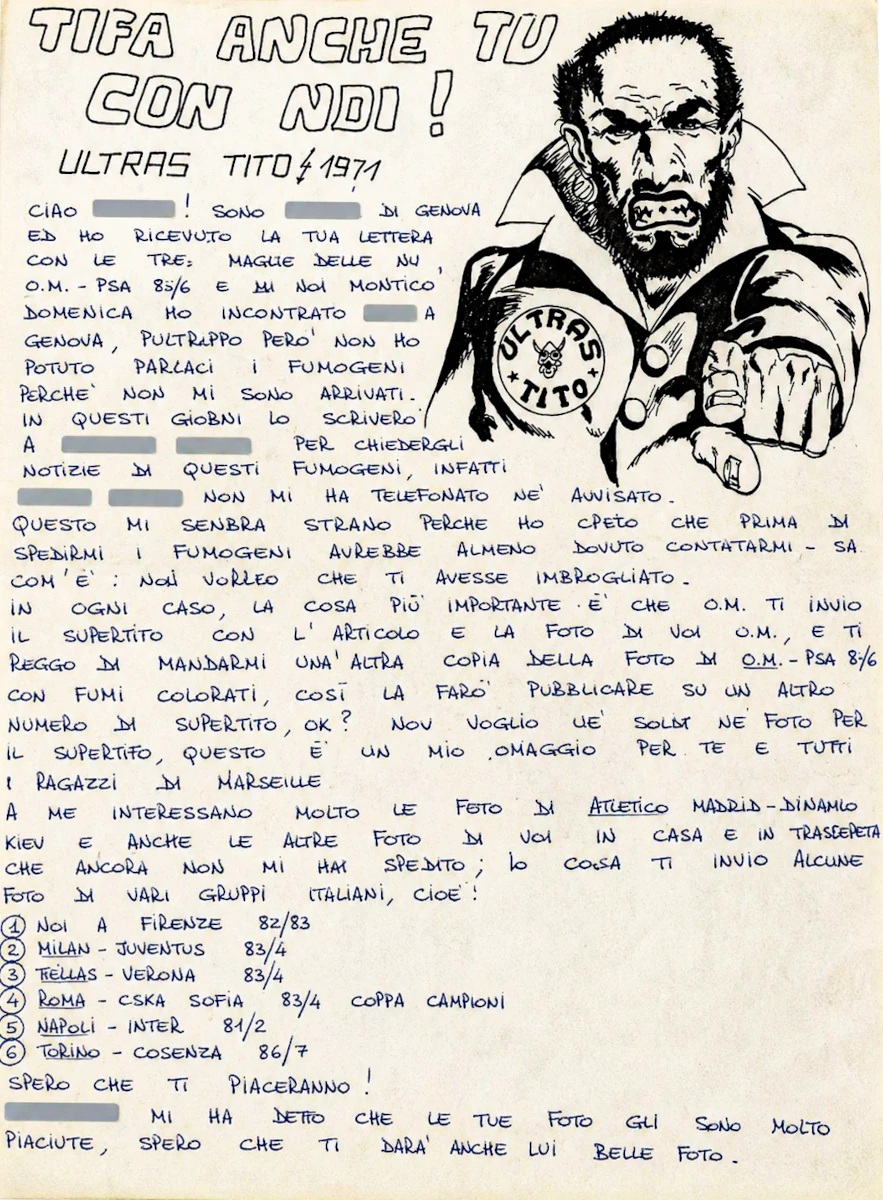 TIFA ANCHE TU
CON NOI!
ULTRAS TITO 1971
CIAO ! SONO DI GENOVA
ED HO RICEVUTO LA TUA LETTERA
CON LE TRE: MAGLIE DELLE NU
O.M. - PSA 85/6 E DI NOI MONTICO'
DOMENICA HO INCONTRATO A
GENOVA, PULTRAPPO PERO' NON HO
POTUTO PARLACI I FUMOGENI
PERCHE' NON MI SONO ARRIVATI.
IN QUESTI GIOBNI LO SCRIVERO'
A PER CHIEDERGLI
NOTIZIE DI QUESTI FUMOGENI, INFATTI
NON MI HA TELEFONATO NE' AVVISATO.
QUESTO MI SENBRA STRANO PERCHE HO CPETO CHE PRIMA DI
SPEDIRMI I FUMOGENI AVREBBE ALMENO DOVUTO CONTATARMI - SA
COM'E': NON VORLEO CHE TI AVESSE IMBROGLIATO.
IN OGNI CASO, LA COSA PIU' IMPORTANTE E' CHE O.M. TI INVIO
IL SUPERTITO CON L'ARTICOLO E LA FOTO DI VOI O.M., E TI
REGGO DI MANDARMI UNA'ALTRA COPIA DELLA FOTO DI O.M. - PSA 85/6
CON FUMI COLORATI, COSI LA FARO' PUBBLICARE SU UN ALTRO
NUMERO DI SUPERTITO, OK? NOU VOGLIO UE' SOLDI NE' FOTO PER
IL SUPERTIFO, QUESTO E' UN MIO OMAGGIO PER TE E TUTTI
I RAGAZZI DI MARSEILLE
A ME INTERESSANO MOLTO LE FOTO DI ATLETICO MADRID - DINAMO
KIEV E ANCHE LE ALTRE FOTO DI VOI IN CASA E IN TRASCEPETA
CHE ANCORA NON MI HAI SPEDITO; IO COSA TI INVIO ALCUNE
FOTO DI VARI GRUPPI ITALIANI, CIOE'!
① NOI A FIRENZE 82/83
② MILAN - JUVENTUS 83/4
③ HELLAS - VERONA 83/4
④ ROMA - CSKA SOFIA 83/4 COPPA CAMPIONI
⑤ NAPOLI - INTER 81/2
⑥ TORINO - COSENZA 86/7
SPERO CHE TI PIACERANNO!
MI HA DETTO CHE LE TUE FOTO GLI SONO MOLTO
PIACIUTE, SPERO CHE TI DARA' ANCHE LUI BELLE FOTO.
ULTRAS
TITO